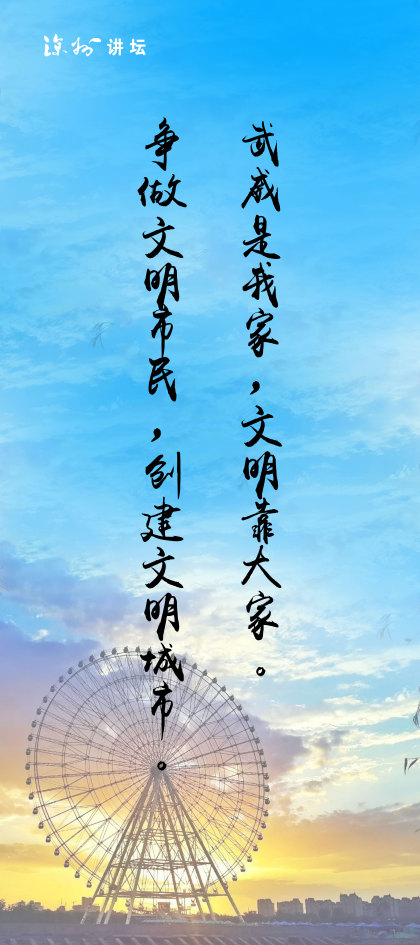 凉州讲坛
武威是我家，文明靠大家。
争做文明市民，创建文明城市。